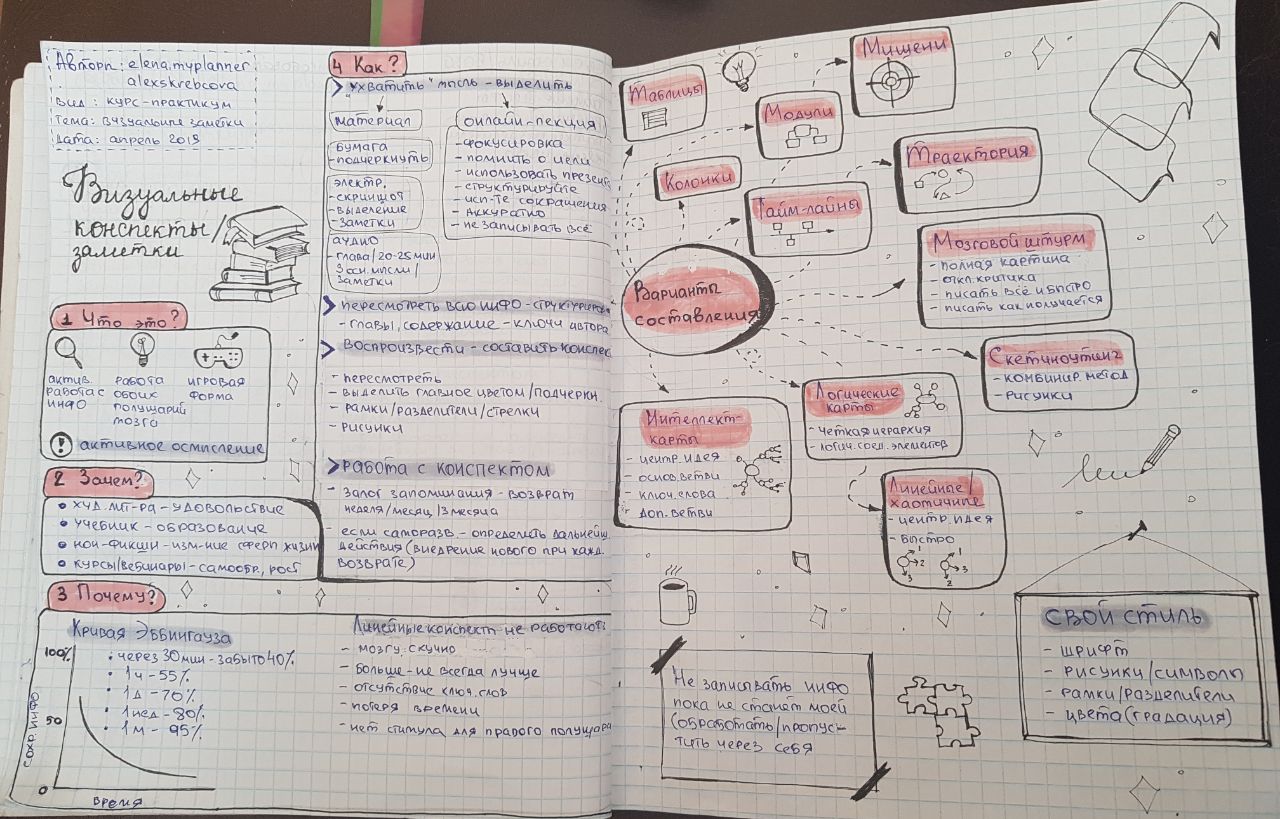 Авторы: elena.myplanner
alexskrebcova
Вид: курс-практикум
Тема: визуальные заметки
Дата: апрель 2019
Визуальные
конспекты/
заметки
1 Что это?
актив.
работа с
инфо
работа
обоих
полушарий
мозга
игровая
форма
! активное осмысление
2 Зачем?
• худ. лит-ра - удовольствие
• учебник - образование
• нон-фикшн - изм-ние сферы жизни
• курсы/вебинары - самообр., рост
3 Почему?
Кривая Эббингауза
• через 30 мин - забыто 40%
• 1ч - 55%
• 1д - 70%
• 1нед - 80%
• 1м - 95%
100%
50
0
сохр. инфо
время
Линейные конспект не работают:
- мозгу скучно
- больше - не всегда лучше
- отсутствие ключ. слов
- потеря времени
- нет стимула для правого полушара
4 Как?
"Ухватить" мысль - выделить
материал
бумага
- подчеркнуть
электр.
- скриншот
- выделение
- заметки
аудио
- глава/20-25 мин
3 осн. мысли/
заметки
онлайн-лекция
- фокусировка
- помнить о цели
- использовать презент
- структурируйте
- исп-те сокращения
- аккуратно
- не записывать всё
пересмотреть всю инфо - структуриров
- главы, содержание - ключи автора
воспроизвести - составить конспек
- пересмотреть
- выделить главное цветом/подчеркн.
- рамки/разделители/стрелки
- рисунки
работа с конспектом
- залог запоминания - возврат
неделя/месяц/3 месяца
- если саморазв. - определить дальнейш.
действия (внедрение нового при кажд.
возврате)
Варианты
составления
Таблицы
Колонки
Модули
Мишени
Тайм-лайны
Траектория
Мозговой штурм
- полная картина
- откл. критика
- писать всё и быстро
- писать как получается
Скетчноутинг
- комбинир. метод
- рисунки
Логические
карты
- четкая иерархия
- логич. соед. элементов
Интеллект-
карты
- центр. идея
- основ. ветви
- ключ. слова
- доп. ветви
Линейные/
хаотичные
- центр. идея
- быстро
1
2
3
1
3
2
Не записывать инфо
пока не станет моей
(обработать/пропус-
тить через себя
свой стиль
- шрифт
- рисунки/символы
- рамки/разделители
- цвета (градация)